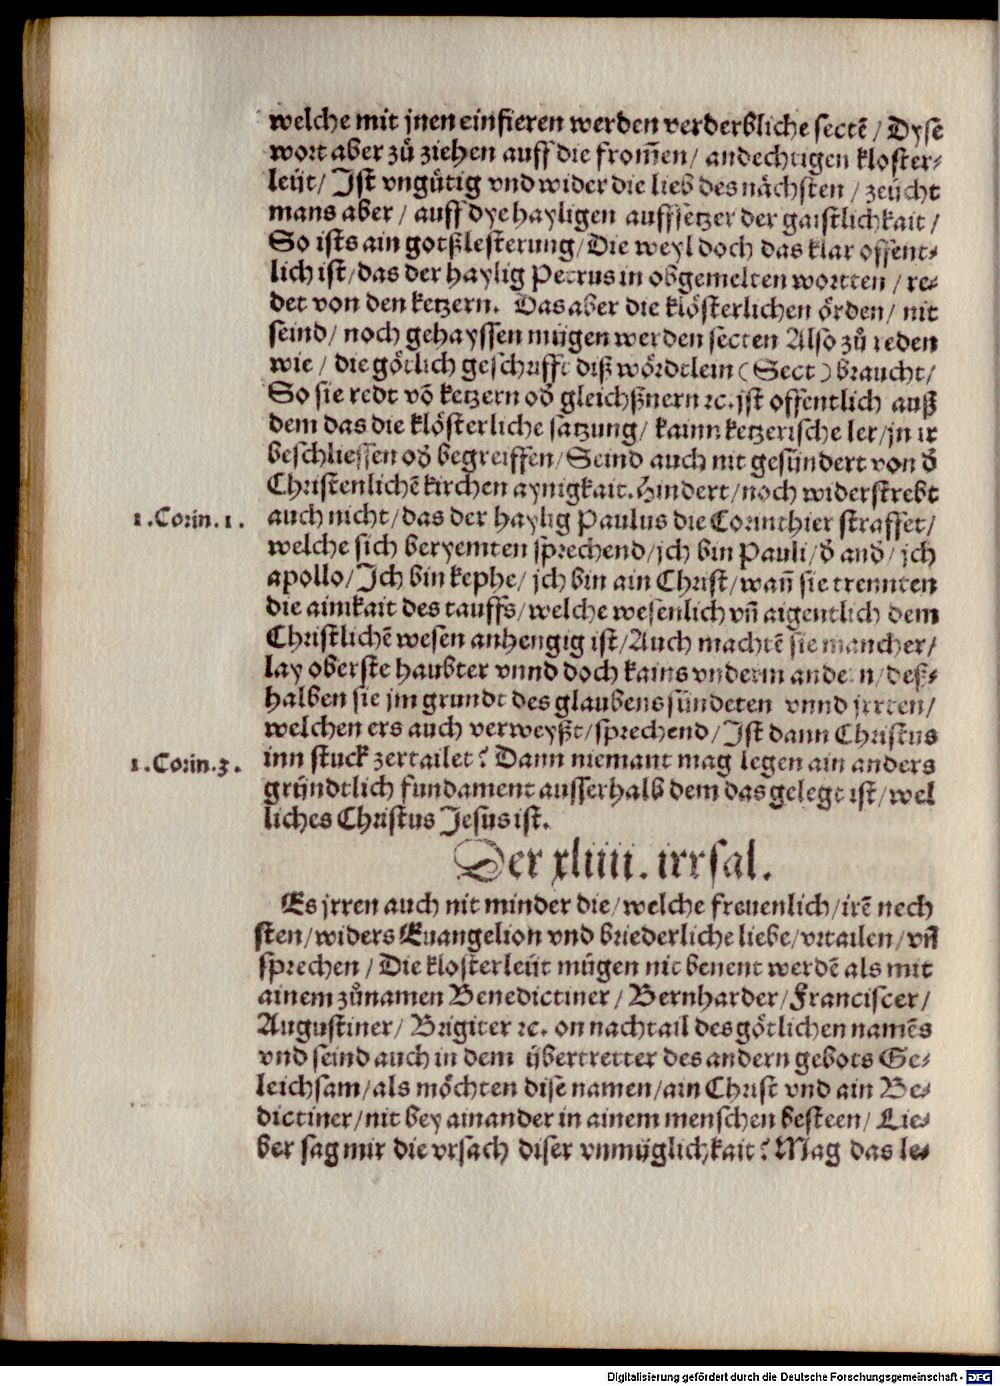 welche mit jnen einfieren werden verderbliche sectē / Dyse
wort aber zů ziehen auff die from̄en / andechtigen kloster⸗
leüt / Ist vngütig vnd wider die lieb des nächsten / zeücht
mans aber / auff dye hayligen auffsetzer der gaistlichkait /
So ists ain gotßlesterung / Die weyl doch das klar offent⸗
lich ist / das der haylig Petrus in obgemelten wortten / re⸗
det von den ketzern. Das aber die klösterlichen örden / nit
seind / noch gehayssen mügen werden secten Also zů reden
wie / die götlich geschrifft diß wördtlein (Sect) braucht /
So sie redt vō ketzern od̄ gleichßnern ꝛc. jst offentlich auß
dem das die klösterliche satzung / kainn ketzerische ler / jn ir
beschliessen od̄ begreiffen / Seind auch nit gesündert von d̄
Christenlichē kirchen aynigkait. Hindert / noch widerstrebt
1.Corin.1. auch nicht / das der haylig Paulus die Corinthier straffet /
welche sich beryemten sprechend / jch bin Pauli / d̄ and̄ / jch
apollo / Ich bin kephe / jch bin ain Christ / wañ sie trennten
die ainikait des tauffs / welche wesenlich vñ aigentlich dem
Christlichē wesen anhengig ist / Auch machtē sie mancher /
lay oberste haubter vnnd doch kains vnderm andern / deß⸗
halben sie jm grundt des glaubens sündeten vnnd jrrten /
welchen ers auch verweyßt / sprechend / Ist dann Christus
1.Corin.3. inn stuck zertailet? Dann niemant mag legen ain anders
gründtlich fundament ausserhalb dem das gelegt ist / wel
liches Christus Jesus ist.
Der xliiii. irrsal.
Es jrren auch nit minder die / welche freuenlich / irē nech
sten / widers Euangelion vnd briederliche liebe / vrtailen / vñ
sprechen / Die klosterleüt mügen nit benent werdē als mit
ainem zůnamen Benedictiner / Bernharder / Franciscer /
Augustiner / Brigiter ꝛc. on nachtail des götlichen namēs
vnd seind auch in dem übertretter des andern gebots Ge⸗
leichsam / als möchten dise namen / ain Christ vnd ain Be⸗
dictiner / nit bey ainander in ainem menschen besteen / Lie⸗
ber sag mir die vrsach diser vnmüglichkait? Mag das le⸗
Digitalisierung gefördert durch die Deutsche Forschungsgemeinschaft - DFG